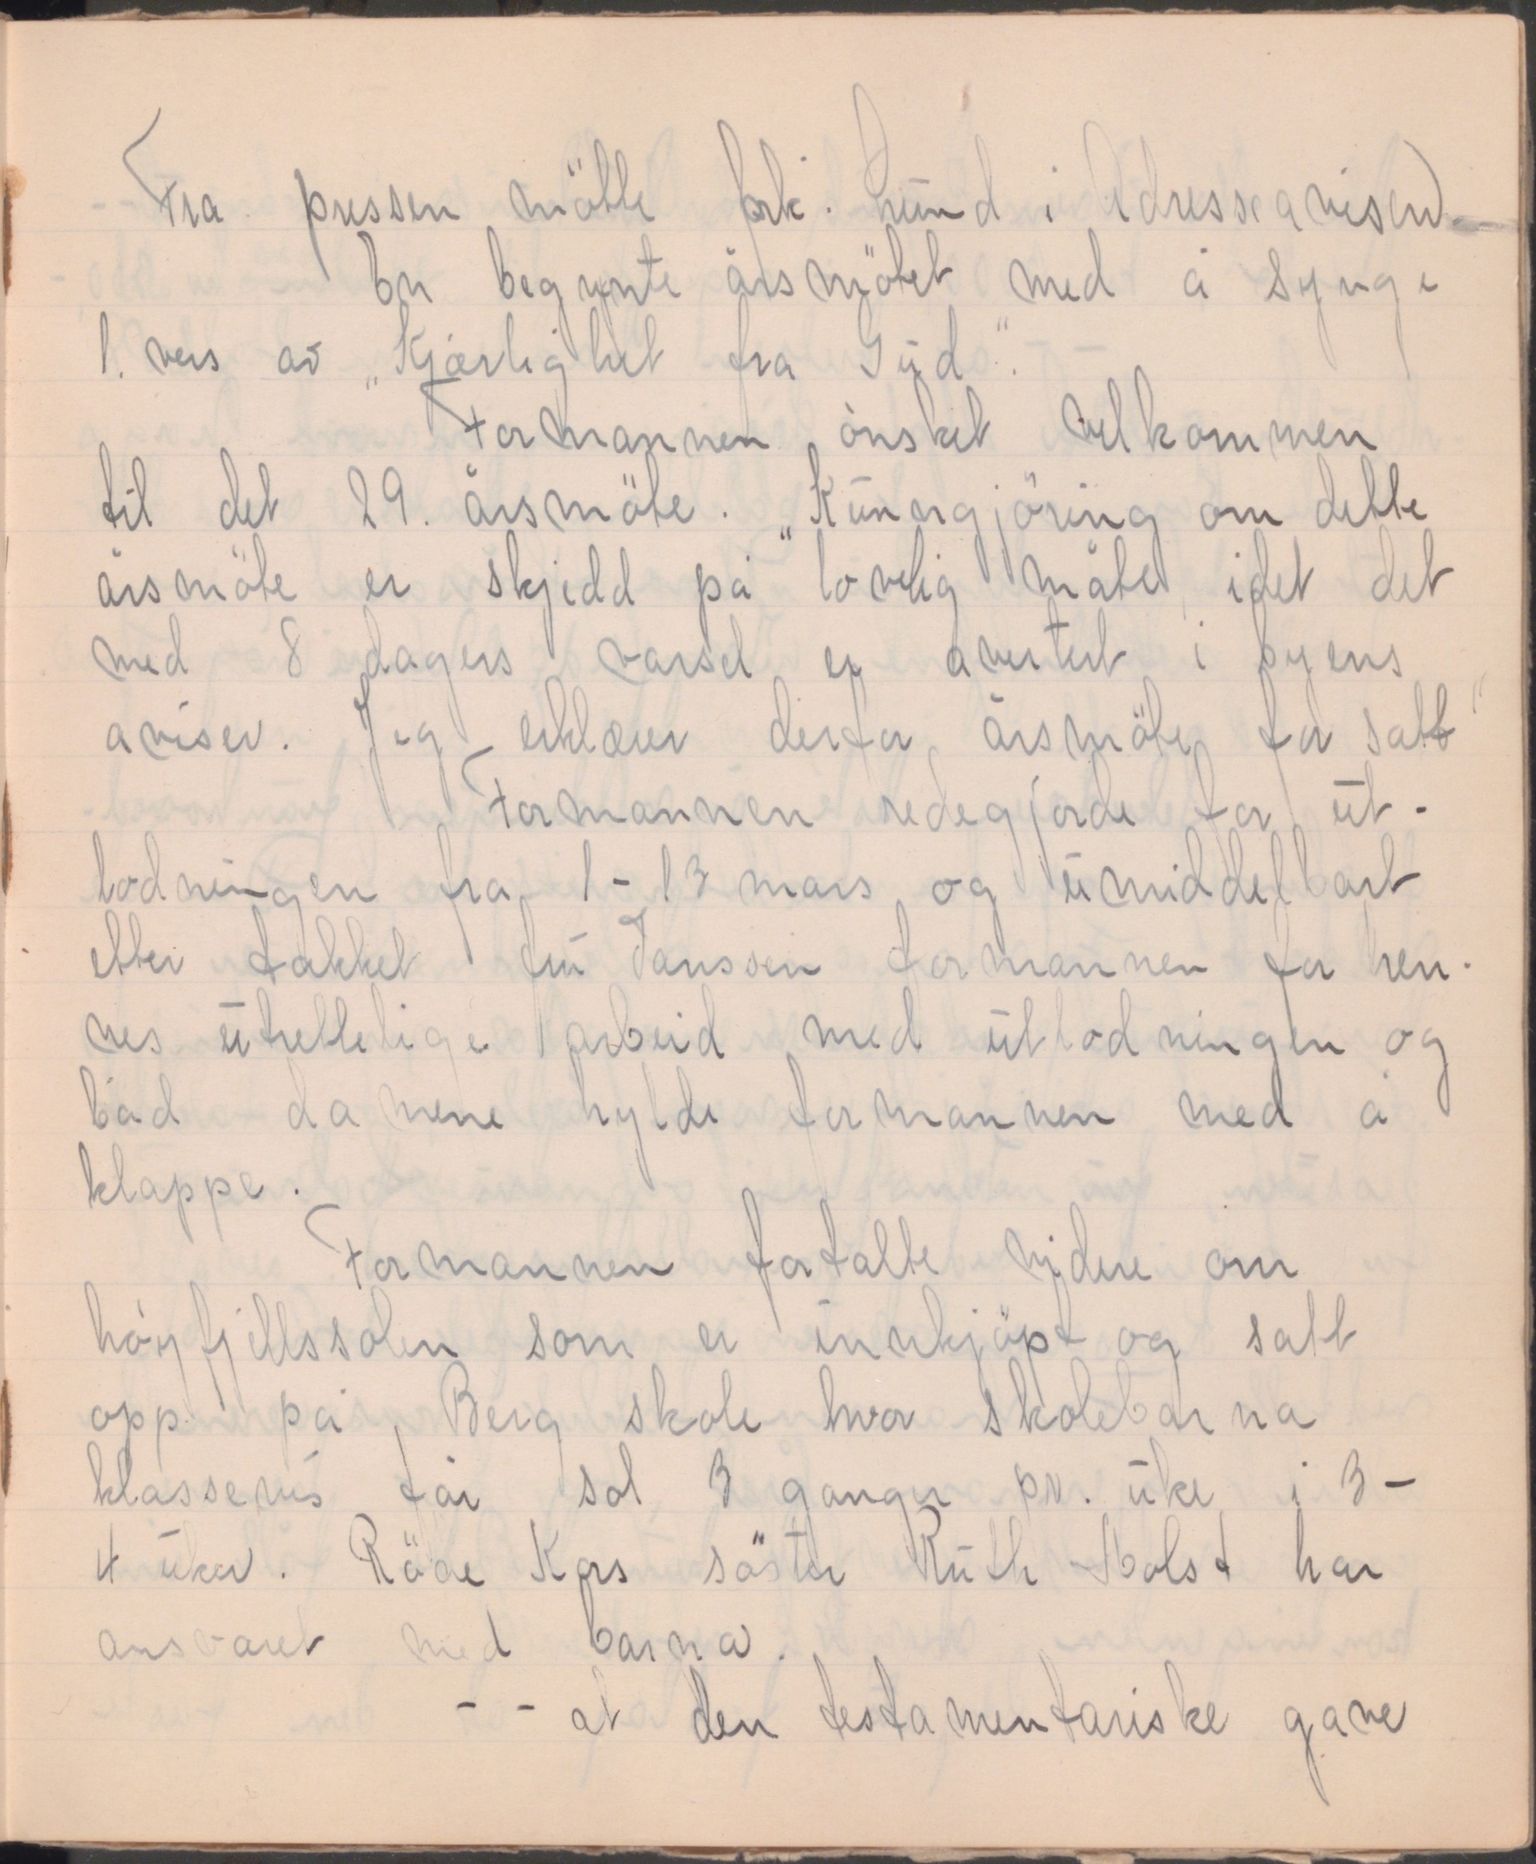 Fra pressen mötte frk. Lund i Adresseavisen.
En begynte årsmötet med å synge
1. vers av „Kjærlighet fra Gud".
Formannen önsket velkommen
til det 29. årsmöte. „Kunngjöring om dette
årsmöte er skjedd på lovlig måte, idet det
med 8 dagers varsel er avertert i byens
aviser. Jeg erklærer derfor årsmöte for satt"
Formannen redegjorde for ut-
lodningen fra 1-13 mars og umiddelbart
etter takket fru Janssen formannen for hen-
nes utrettelige arbeid med utlodningen og
bad damene hylde formannen med å
klappe.
Formannen fortalte videre om
höyfjellssolen som er innkjöpt og satt
opp på Berg skole hvor skolebarna
klassevis får sol 3 ganger pr. uke i 3-
4 uker. Röde Kors söster Ruth Holst har
ansvaret med barna.
-- at den testamentariske gave